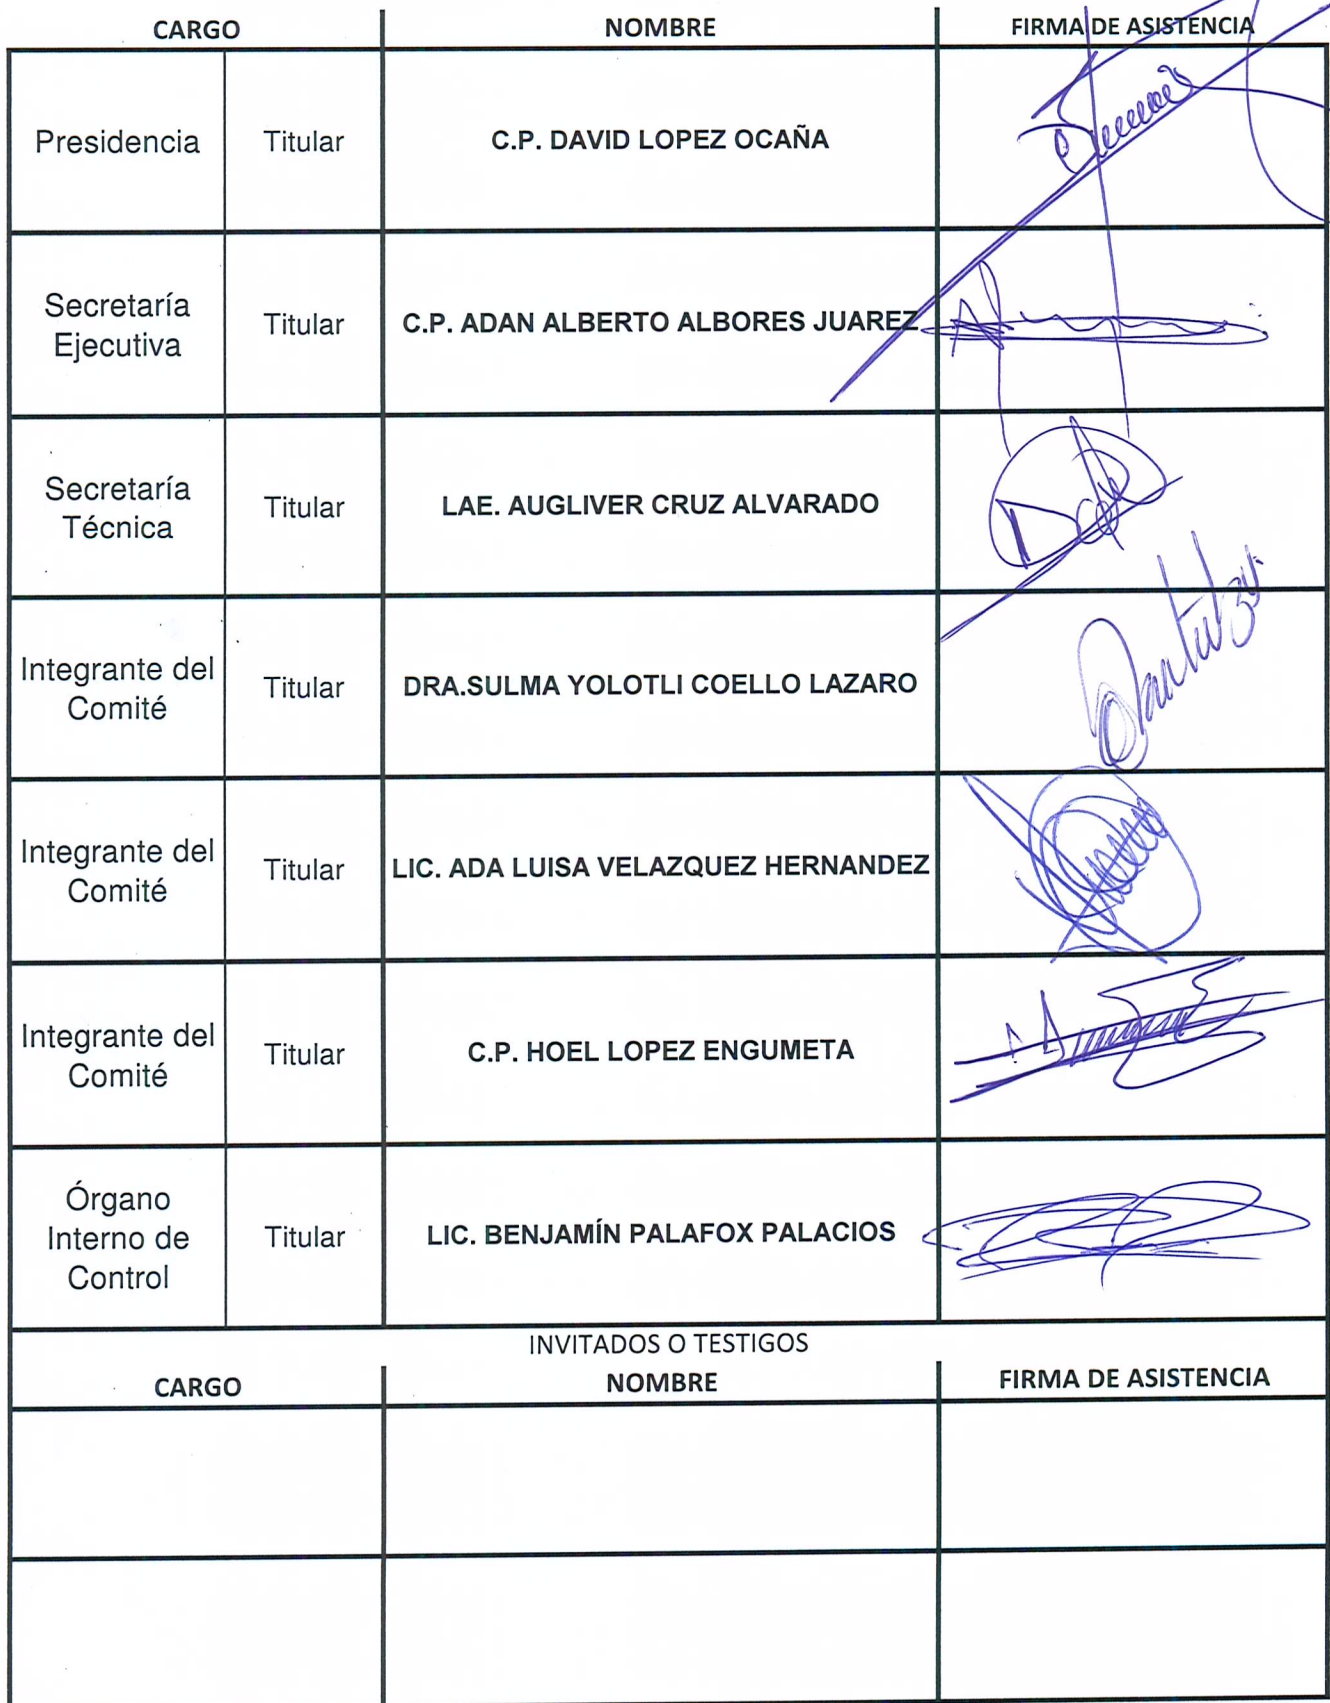 CARGO NOMBRE FIRMA DE ASISTENCIA
Presidencia Titular C.P. DAVID LOPEZ OCAÑA
Secretaría
Ejecutiva
Titular C.P. ADAN ALBERTO ALBORES JUAREZ
Secretaría
Técnica
Titular LAE. AUGLIVER CRUZ ALVARADO
Integrante del
Comité
Titular DRA.SULMA YOLOTLI COELLO LAZARO
Integrante del
Comité
Titular LIC. ADA LUISA VELAZQUEZ HERNANDEZ
Integrante del
Comité
Titular C.P. HOEL LOPEZ ENGUMETA
Órgano
Interno de
Control
Titular LIC. BENJAMÍN PALAFOX PALACIOS
INVITADOS O TESTIGOS
CARGO NOMBRE FIRMA DE ASISTENCIA